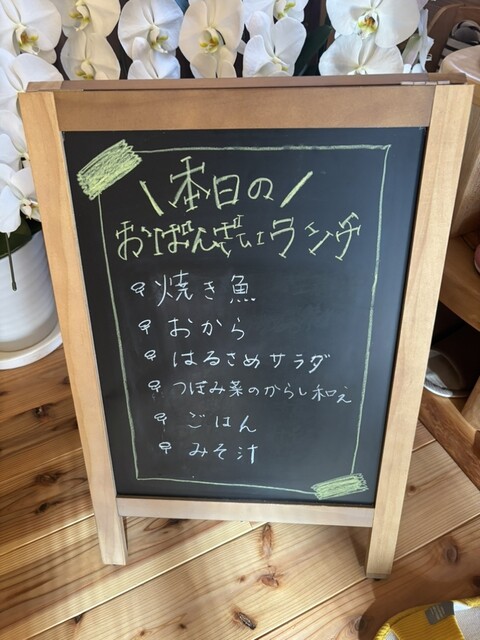 \本日の/
おばんざいランチ
焼き魚
おから
はるさめサラダ
つぼみ菜のからし和え
ごはん
みそ汁